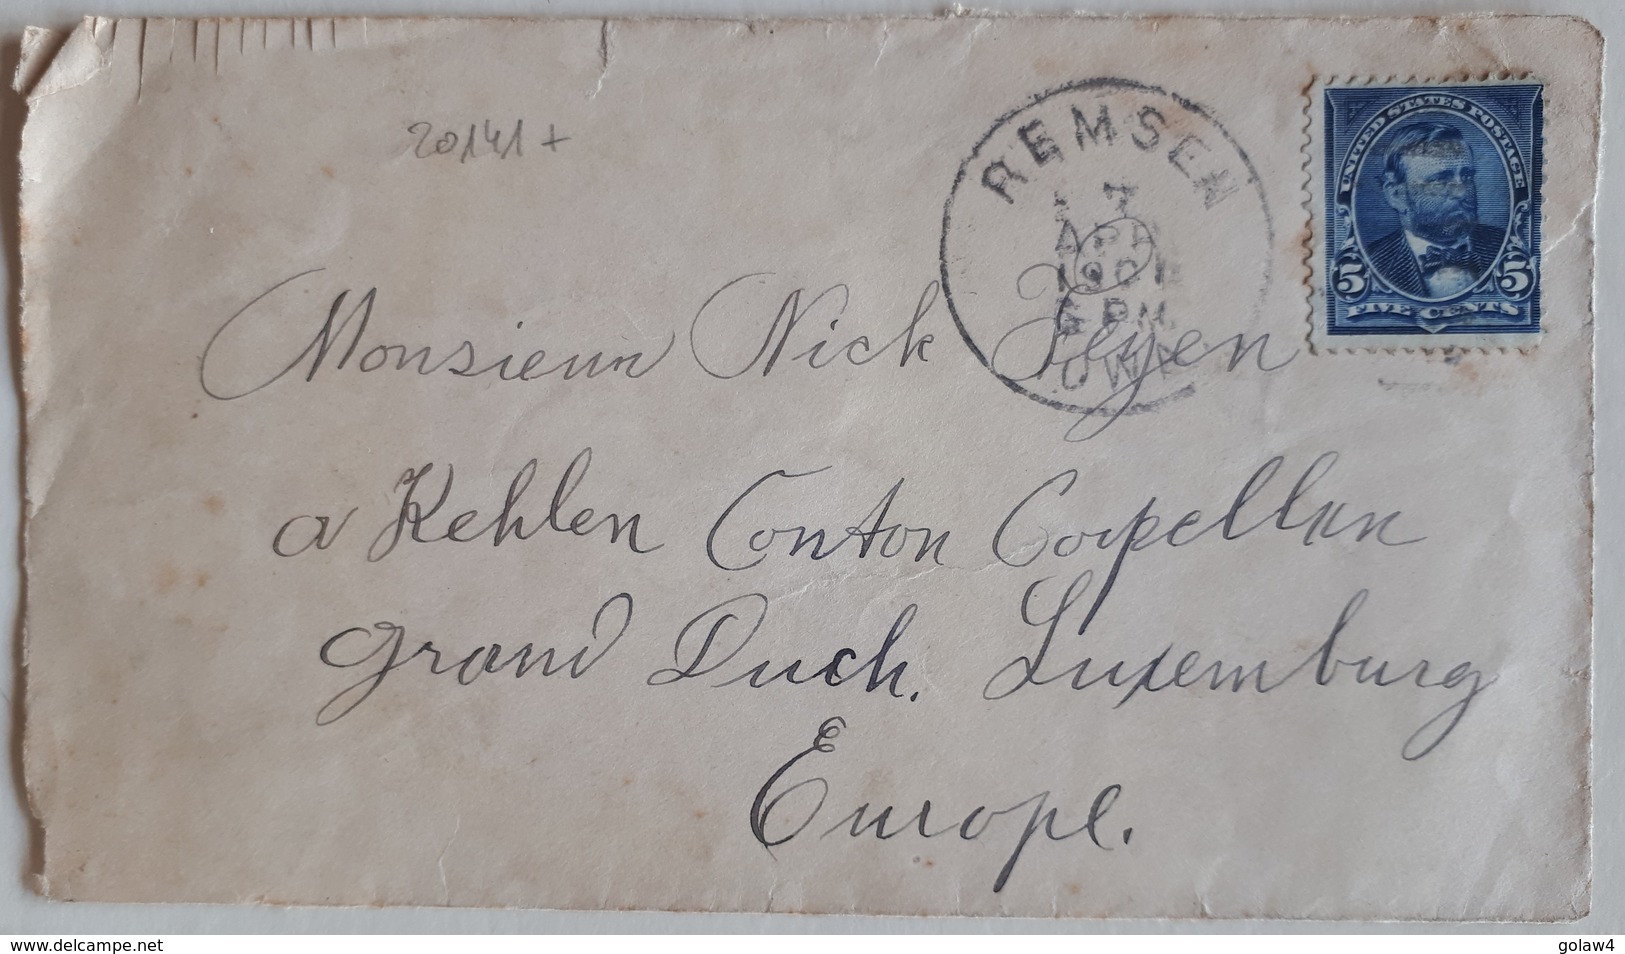 20141+
REMSEN
APR
1901
6 PM
IOWA
UNITED STATES POSTAGE
5 5
FIVE CENTS
Monsieur Nick Feyen
a Kehlen Conton Capellen
Grand Duch. Luxemburg
Europe.
www.delcampe.net
golaw4